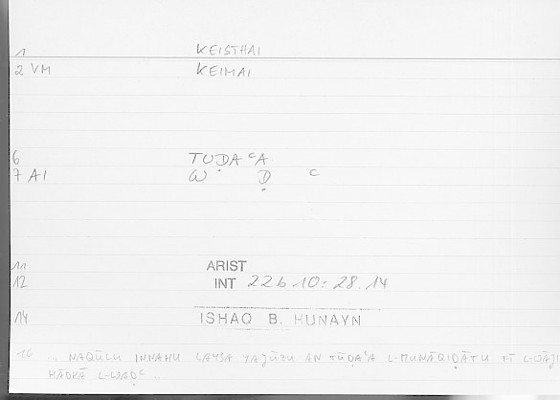 1 KEISTHAI
2 VM KEIMAI
6 TŪḌAʿA
7 AI W Ḍ ʿ
11 ARIST
12 INT 22b 10: 28.14
14 ISHAQ B. HUNAYN
16 ... NAQŪLU INNAHU LAYSA YAJŪZU AN TŪḌAʿA L-MUNĀQIḌATU FĪ
HĀḎĀ L-WAḌʿ ..